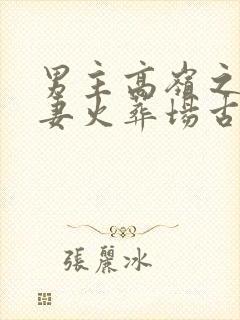 男主高嶺之
妻火葬場古
張麗冰